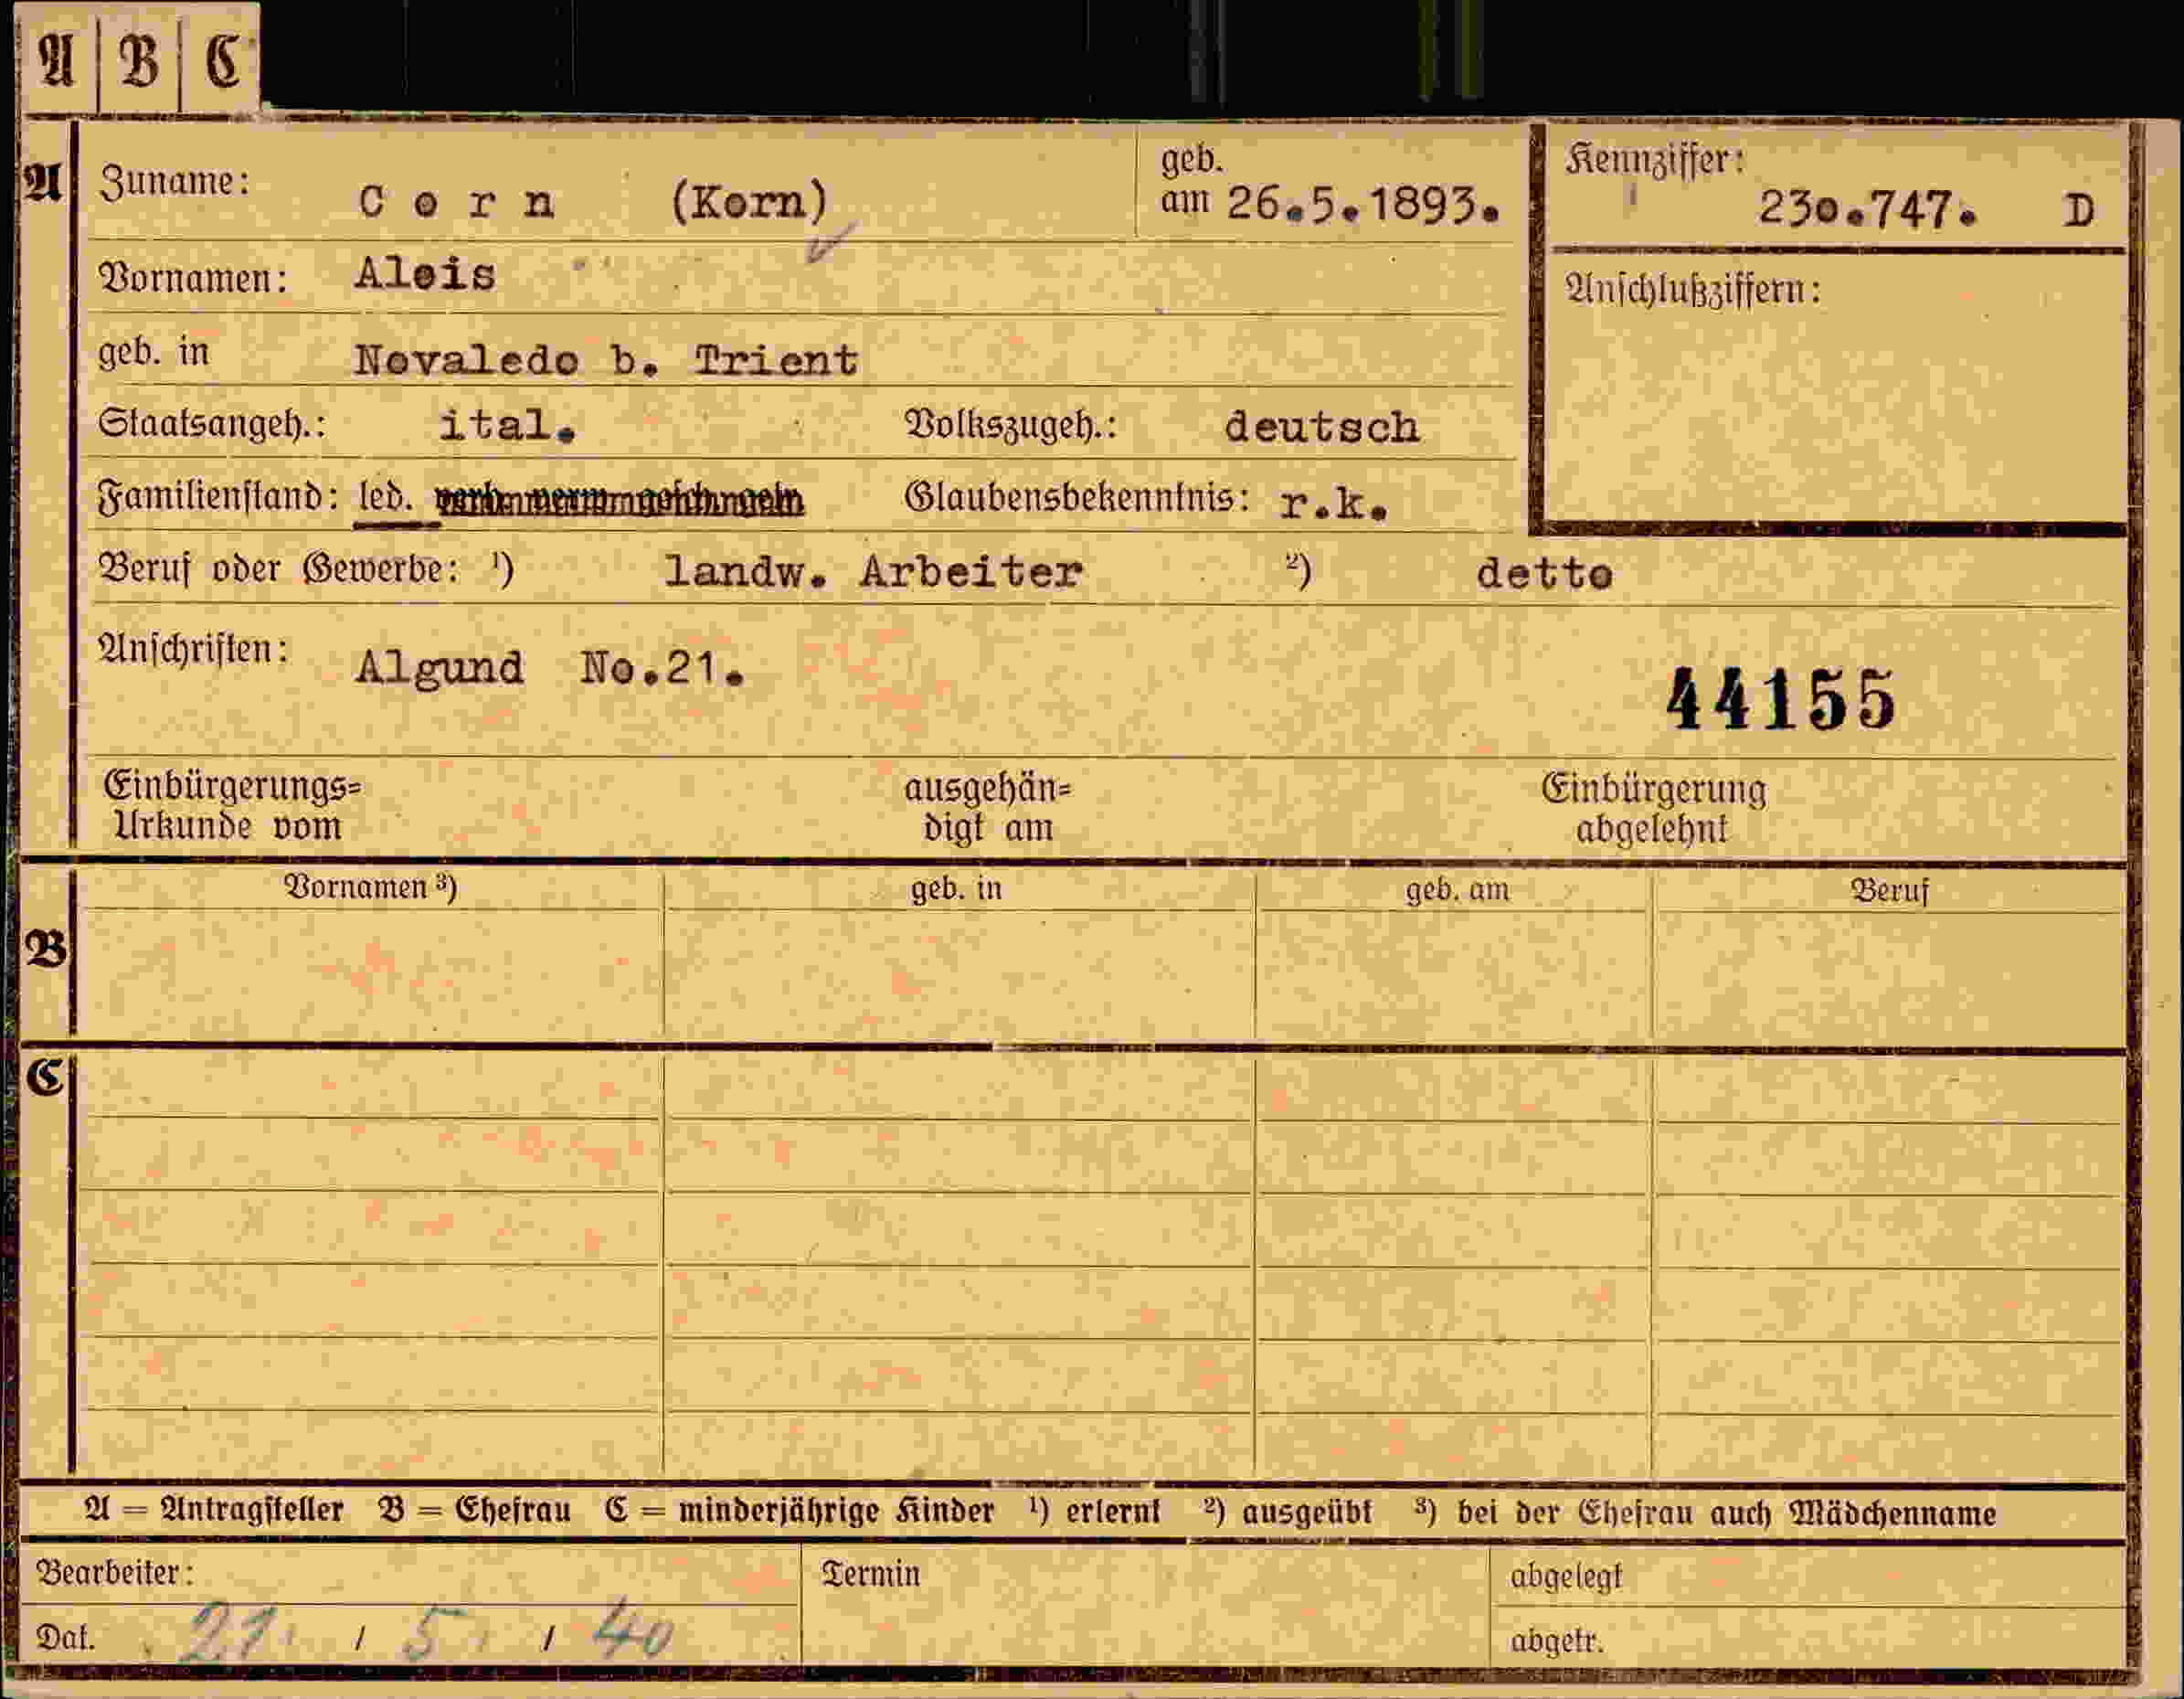 A B C
A Zuname: Corn (Korn) geb. am 26.5.1893. Kennziffer: 230.747. D
Vornamen: Alois Anschlußziffern:
geb. in Novaledo b. Trient
Staatsangeh.: ital. Volkszugeh.: deutsch
Familienstand: led. Glaubensbekenntnis: r.k.
Beruf oder Gewerbe: ¹) landw. Arbeiter ²) detto
Anschriften: Algund No.21. 44155
Einbürgerungs= ausgehän= Einbürgerung
Urkunde vom digt am abgelehnt
Vornamen ³) geb. in geb. am Beruf
B
C
A = Antragsteller B = Ehefrau C = minderjährige Kinder ¹) erlernt ²) ausgeübt ³) bei der Ehefrau auch Mädchenname
Bearbeiter: Termin abgelegt
Dat. 21. / 5. / 40 abgetr.